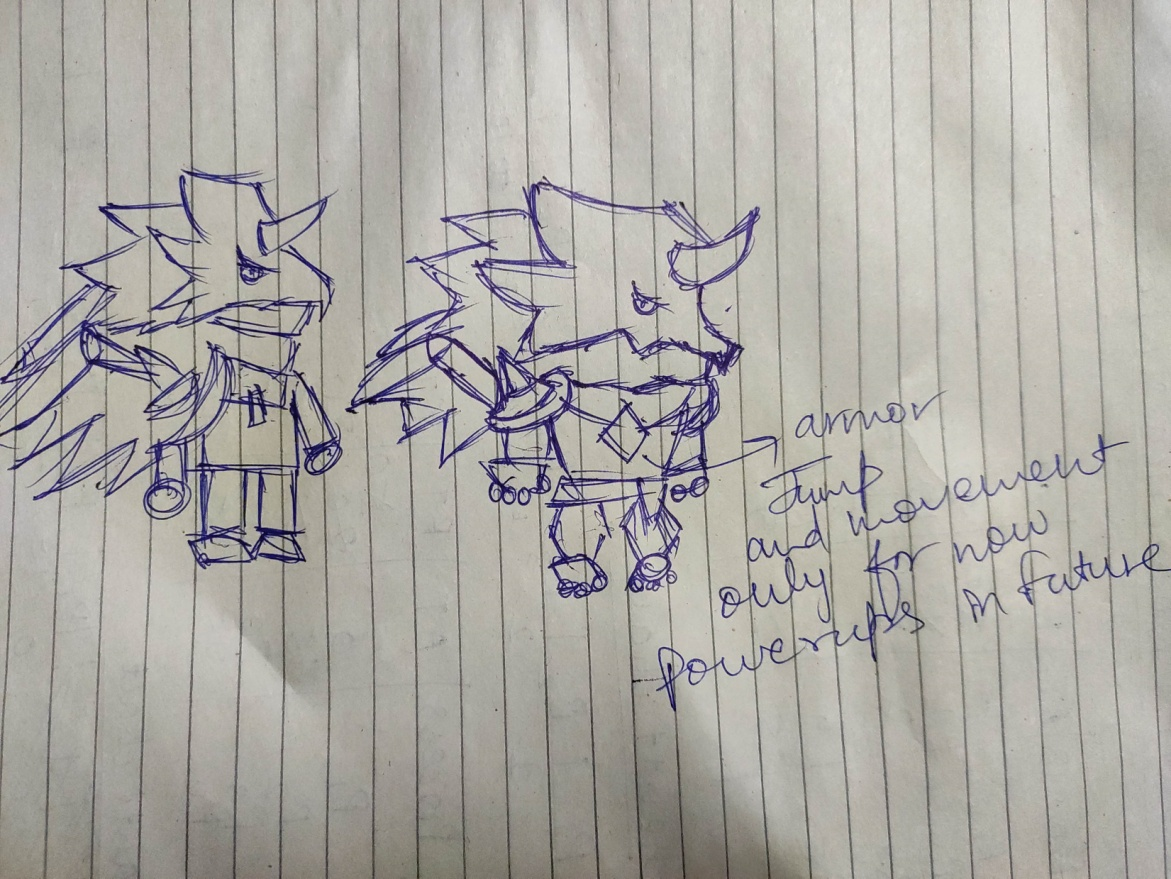 armor
Jump
and movement
only for now
Powerups in future